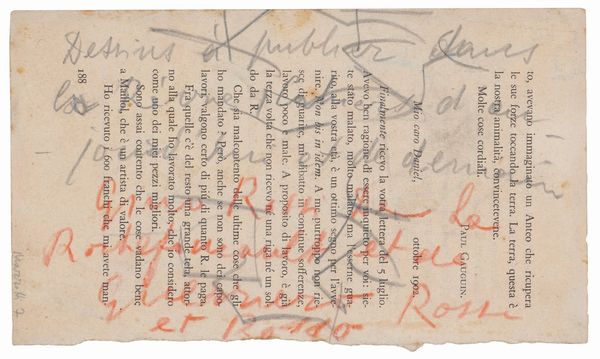 Dessins à publier dans
Rossi
et
to, avevano immaginato un Anteo che ricupera
le sue forze toccando la terra. La terra, questa è
la nostra animalità, convincetevene.
Molte cose cordiali.
PAUL GAUGUIN.
ottobre 1902.
Mio caro Daniel,
Finalmente ricevo la vostra lettera del 5 luglio.
Avevo ben ragione di essere inquieto per voi: sie-
te stato malato, molto malato; ma l'esserne gua-
rito, alla vostra età, è un ottimo segno per l'avve-
nire. Non bis in idem. A me purtroppo non rie-
sce di guarire, mi dibatto in continue sofferenze,
lavoro poco e male. A proposito di lavoro, è già
la terza volta che non ricevo né una riga né un sol-
do da R.
Che sia malcontento delle ultime cose che gli
ho mandato? Però, anche se non sono dei capo-
lavori, valgono certo di più di quanto R. le paga.
Fra quelle c'è del resto una grande tela, attor-
no alla quale ho lavorato molto; che io considero
come uno dei miei pezzi migliori.
Sono assai contento che le cose vadano bene
a Maillol, che è un artista di valore.
Ho ricevuto 1.600 franchi che mi avete man-
188